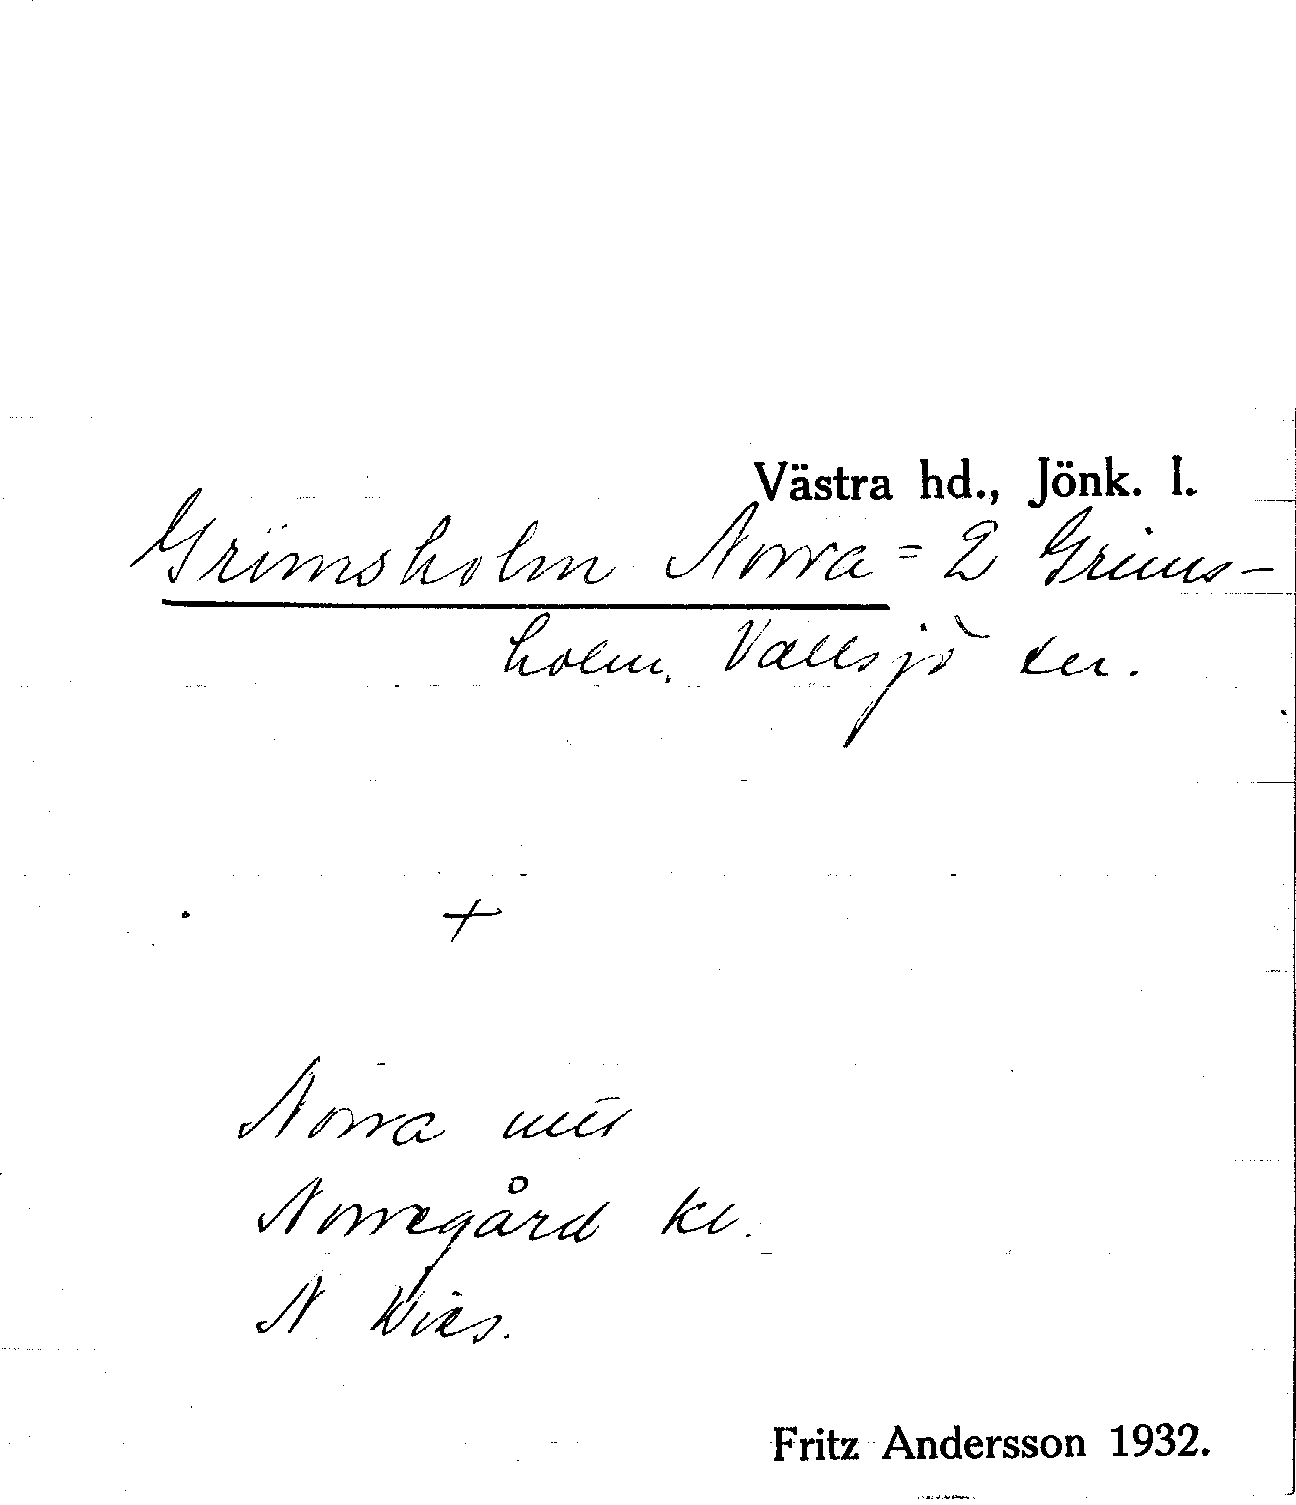 Västra hd., Jönk. l.
Grimsholm Norra = 2 Grims-
holm. Vallsjö sn.
+
Norra
Norregård
N
Fritz Andersson 1932.